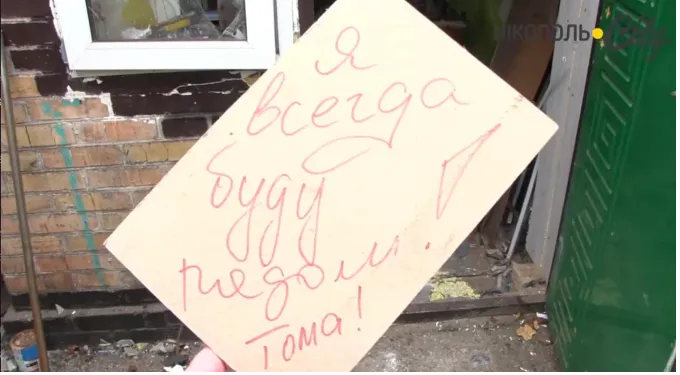 Я
всегда
буду
рядом!
Тома!
НІКОПОЛЬ